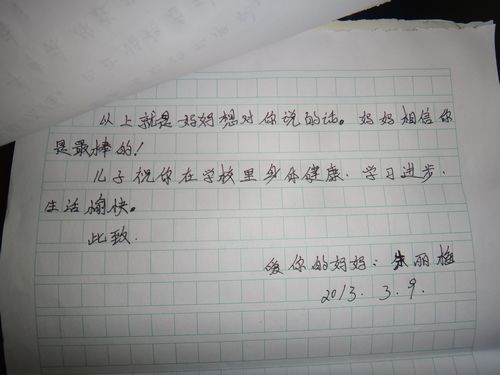 以上就是妈妈想对你说的话。妈妈相信你
是最棒的！
儿子祝你在学校里身体健康、学习进步、
生活愉快。
此致.
爱你的妈妈：朱丽梅
2013. 3. 9.